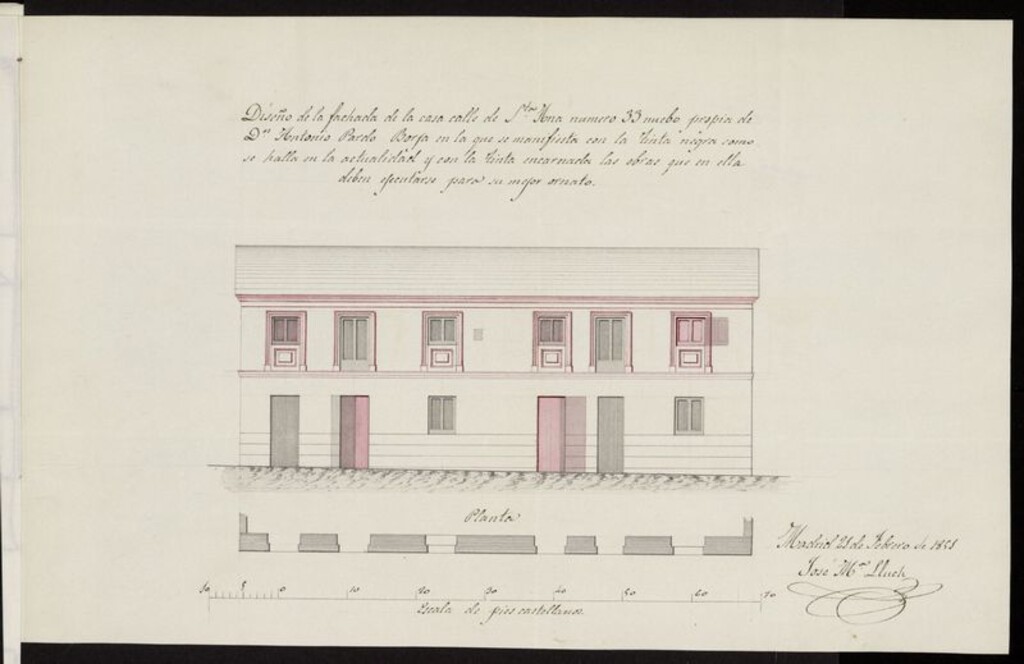 Diseño de la fachada de la casa calle de Sta Ana numero 33 nuebo propia de
Dn Antonio Pardo Borja en la que se manifiesta con la tinta negra como
se halla en la actualidad y con la tinta encarnada las obras que en ella
deben ejecutarse para su mejor ornato.
Planta
Madrid 21 de Febrero de 1851
José Ma Lluch
10 5 0 10 20 30 40 50 60 70
Escala de pies castellanos